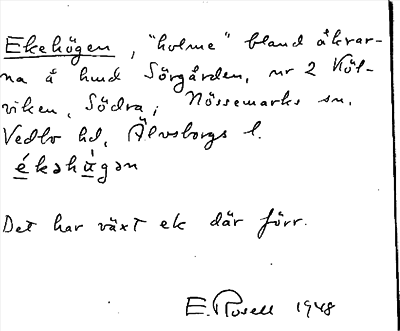 Ekehögen, "holme" bland åkrar-
na å hmd Sörgården, nr 2 Köl-
viken, Södra, Nössemarks sn.
Vedbo hd, Älvsborgs l.
ékəhù̀gən
Det har växt ek där förr.
E. Rosell 1948